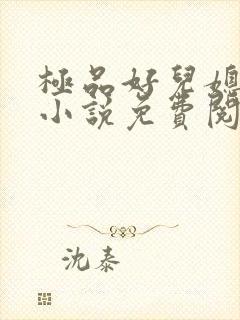 極品好兒媳
小說免費閱
沈泰